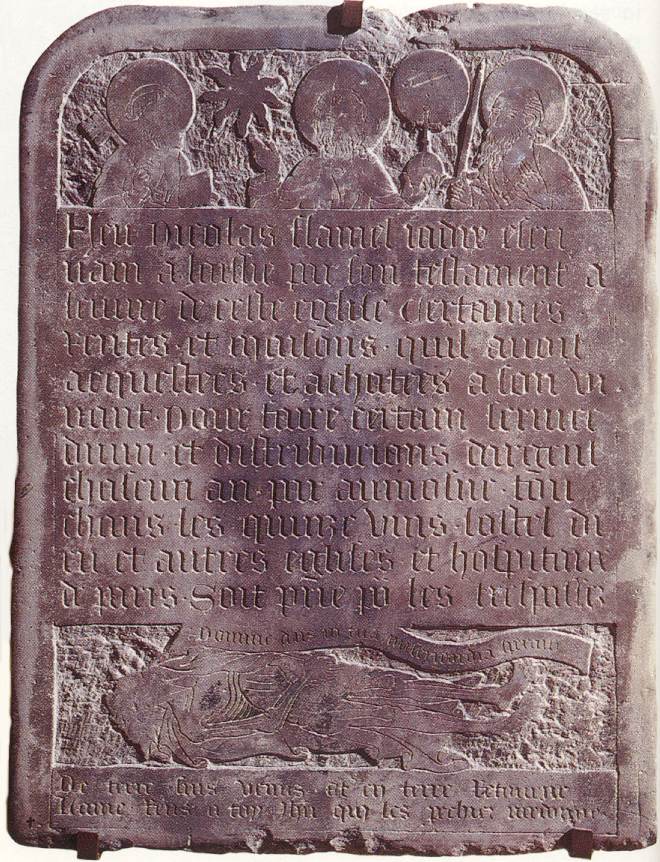 Feu Nicolas flamel iadis escri
vain a laissie par son testament a
leuvre de ceste eglise Certaines
Rentes et maisons quil avoit
acquestees et achatees a son vi
vant pour faire certain service
divin et distribucions dargent
chascun an par aumosne tou
chans les quinze vins lostel di
eu et autres eglises et hospitaux
de paris Soit prie po les trespassez
Domine deus in tua misericordia speravi
De terre suis venus et en terre Retourne
Lame Rens a toy Jhu qui les pechiez pardonne